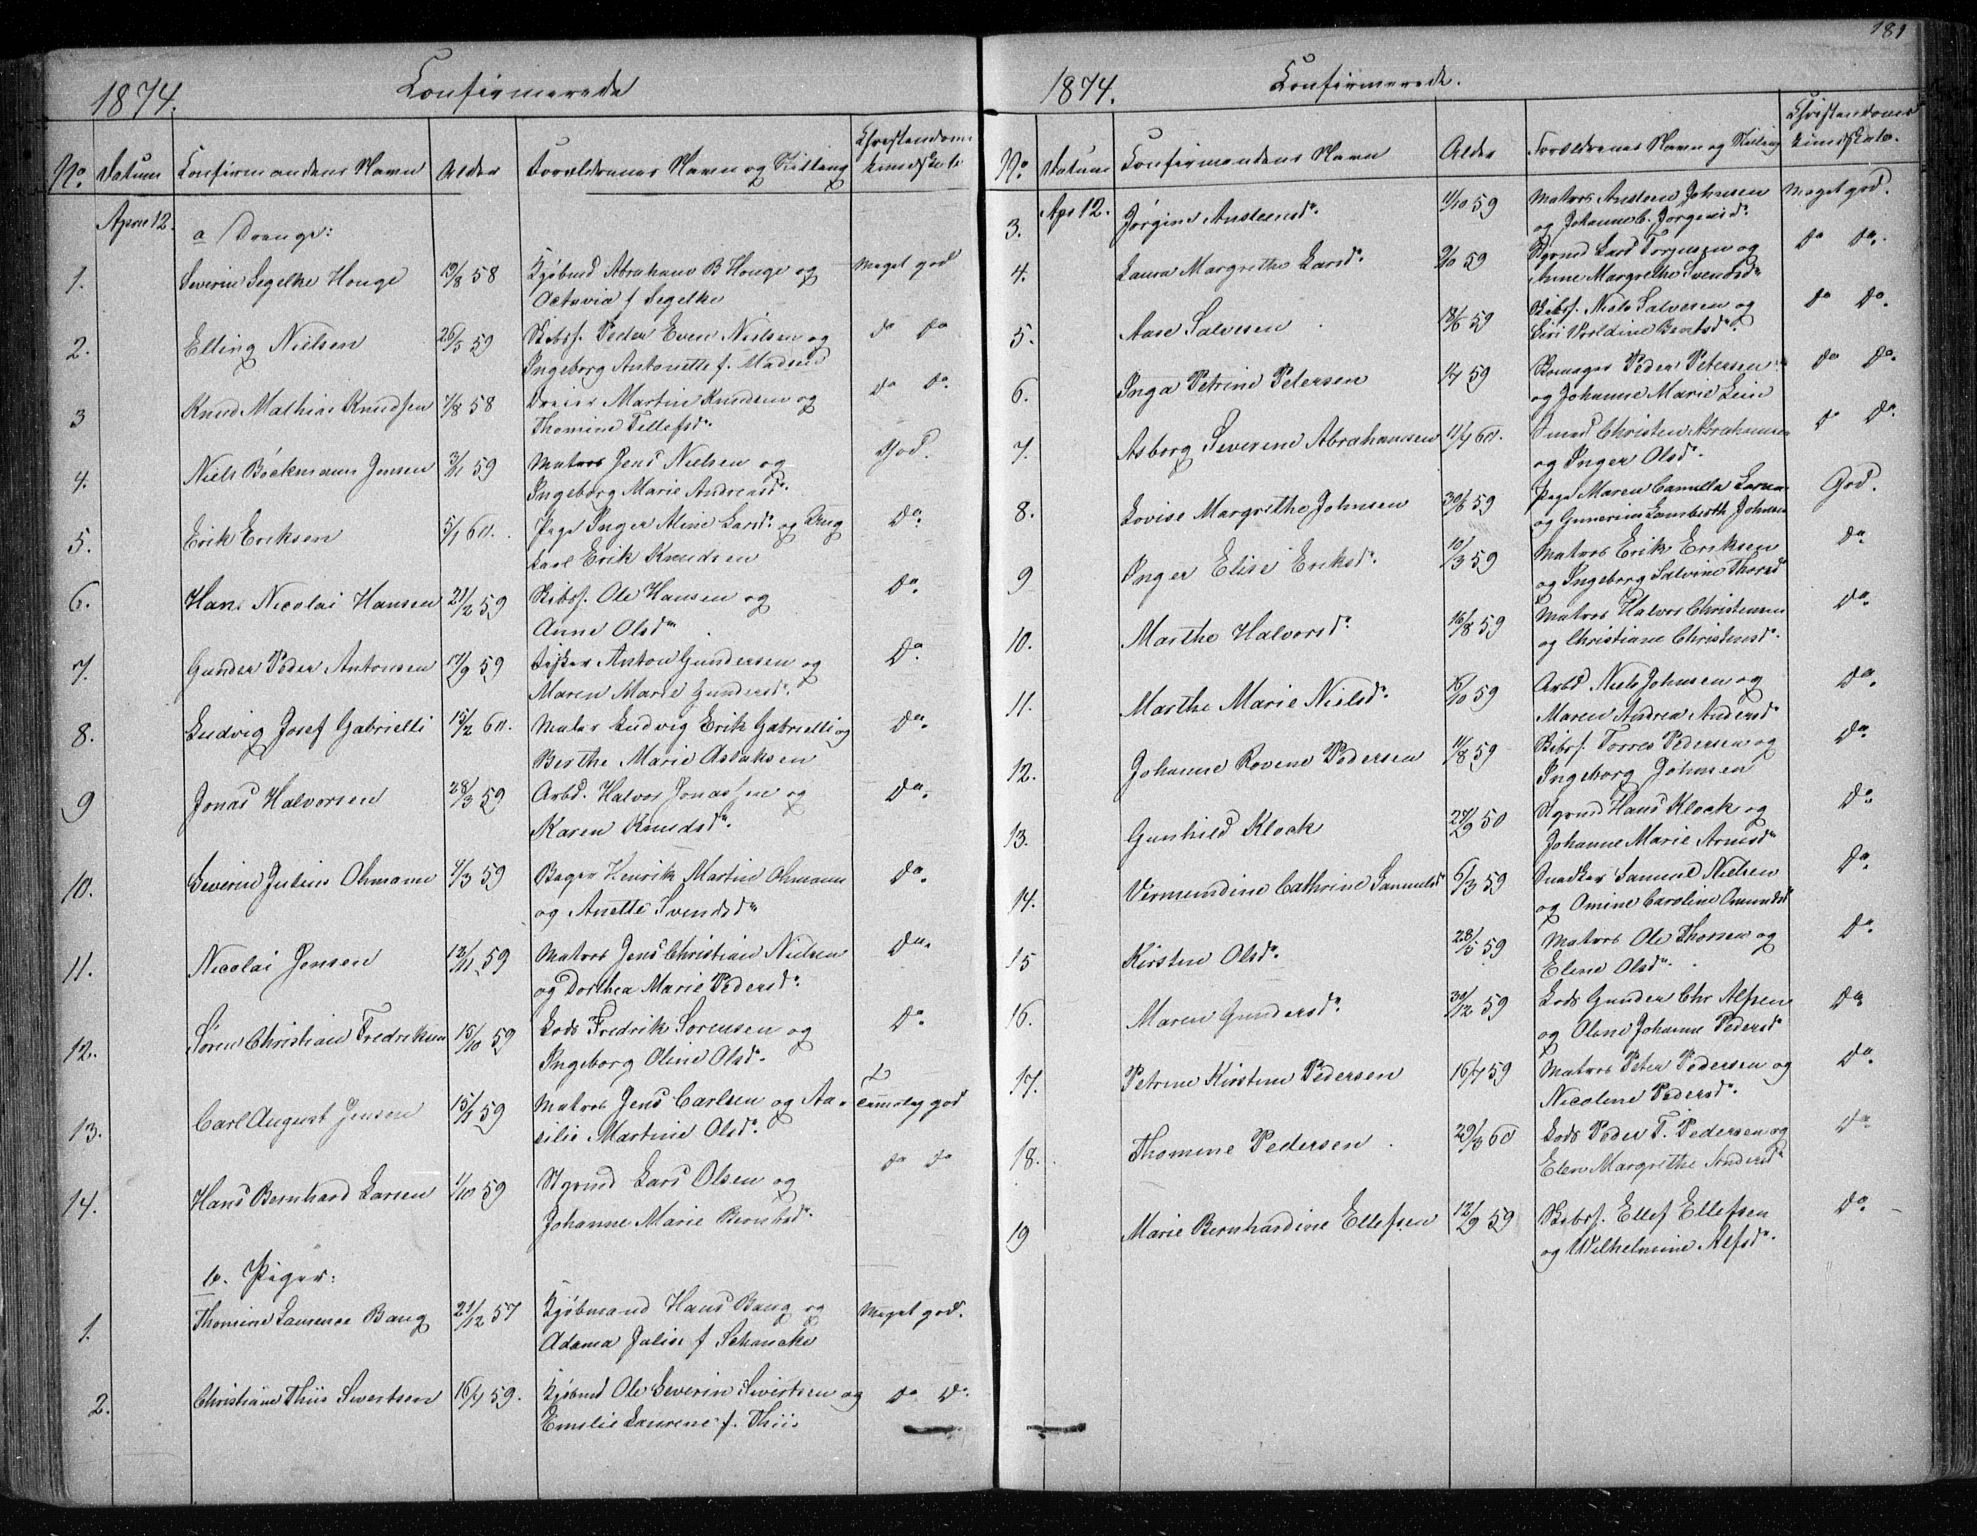 1874. Confirmerede
No. Datum Confirmandens Navn Alder Forældrenes Navn og Stilling Christendoms kundskab
April 12. a Drenge:
1. Severin Segelke Houge 19/8 58 Kjøbmd Abraham B Houge og Meget god
Octavia f Segelke
2. Elling Nielsen 26/5 59 Skibsf. Peder Even Nielsen og do do
Ingeborg Antonette f. Madsen
3 Knud Mathias Knudsen 7/8 58 Dreier Martin Knudsen og do do.
Thomine Tellefsdr.
4. Niels Böckmann Jensen 3/11 59 Matros Jens Nielsen og God.
Ingeborg Marie Andreasdr.
5. Erik Eriksen 5/1 60. Pige Inger Aline Larsdr. og Ung do.
karl Erik Knudsen
6. Hans Nicolai Hansen 21/2 59 Skibsf. Ole Hansen og do.
Anne Olsdr
7. Gunder Peder Antonsen 17/9 59 Anton Gundersen og do.
Maren Marie Gundersdr.
8. Ludvig Josef Gabrielli 15/2 60. Maler Ludvig Erik Gabrielli og do.
Berthe Marie Aslaksen
9 Jonas Halvorsen 28/3 59 Arbd. Halvor Jonassen og do.
Karen Knudsdr.
10. Severin Julius Ohmann 4/3 59 Bager Henrik Martin Ohmann do.
og Anette Svendsdr
11. Nicolai Jensen 12/11 59 Matros Jens Christian Nielsen do.
og Dorthea Marie Pedersdr.
12. Søren Christian Fredriksen 15/10 59 Lods Fredrik Sørensen og do.
Ingeborg Oline Olsdr.
13. Carl August Jensen 59 Matros Jens Carlsen og Aa- Temmelig god
silie Martine Olsdr.
14. Hans Bernhard Larsen 1/10 59 Styrmd Lars Olsen og do do
Johanne Marie Berntsdr.
b. Piger:
1. Thomine Laurence Bang 21/12 57 Kjøbmand Hans Bang og Meget god.
Adama Julie f Schancke
2. Christiane Thiis Sivertsen 16/7 59. Kjøbmd Ole Severin Sivertsen og do do.
Emilie Laurene f. Thiis
181
1874. Confirmerede.
No. Datum Confirmandens Navn Alder Forældrenes Navn og Stilling Christendoms kundskab.
3. Apr 12. Jørgine Austeensdr. 11/10 59 Matros Austeen Johnsen Meget god.
og Johanne C. Jørgensdr.
4. Laura Margrethe Larsdr. 9/10 59 Styrmd Lars Torjusen og do do.
Anne Margrethe Svendsdr
5. Aase Salvesen 18/6 59 Skibsf. Niels Salvesen og do do.
Siri Berntsdr.
6. Inga Petrine Petersen 14/7 59 Skomager Peder Petersen do do.
og Johanne Marie Lein
7. Asborg Severine Abrahamsen 11/4 60. Smed Christen Abrahamsen do do.
og Inger Olsdr.
8. Lovise Margrethe Johnsen 30/6 59 Pige Maren Camilla God.
og Gunerius Lamberth Johnsen
9 Inger Elise Eriksdr. 10/3 59 Matros Erik Eriksen do.
og Ingeborg Salvine Thorsdr
10. Marthe Halvorsdr. 16/8 59 Matros Halvor Christensen do.
og Christiane Christensdr.
11. Marthe Marie Nielsdr. 16/10 59 Arbd Niels Johnsen og do.
Maren Andrea Andersdr
12. Johanne Rovene Pedersen 4/8 59 Skibsf. Torres Pedersen og do.
Ingeborg Johnsen
13. Gunhild Klock 27/9 50 Styrmd Hans Klock og do.
Johanne Marie Arnesdr
14. Virmundine Cathrine Samuelsdr 6/3 59 Snedker Samuel Nielsen do.
og Omine Caroline Omundsdr
15 Kirsten Olsdr. 28/5 59 Matros Ole Thorsen og do.
Elene Olsdr.
16. Maren Gundersdr. 30/12 59 Lods Gunder Chr Alfsen do.
og Olene Johanne Pedersdr
17. Petrine Kirstine Pedersen 16/7 59 Matros Peter Pedersen og do.
Nicoline Pedersdr.
18. Thomine Pedersen 60 Lods Peder T. Pedersen og do.
Elen Margrethe Andersdr
19 Marie Bernhardine Ellefsen 12/9 59 Skibsf. Ellef Ellefsen do.
og Wilhelmine Alfsdr.